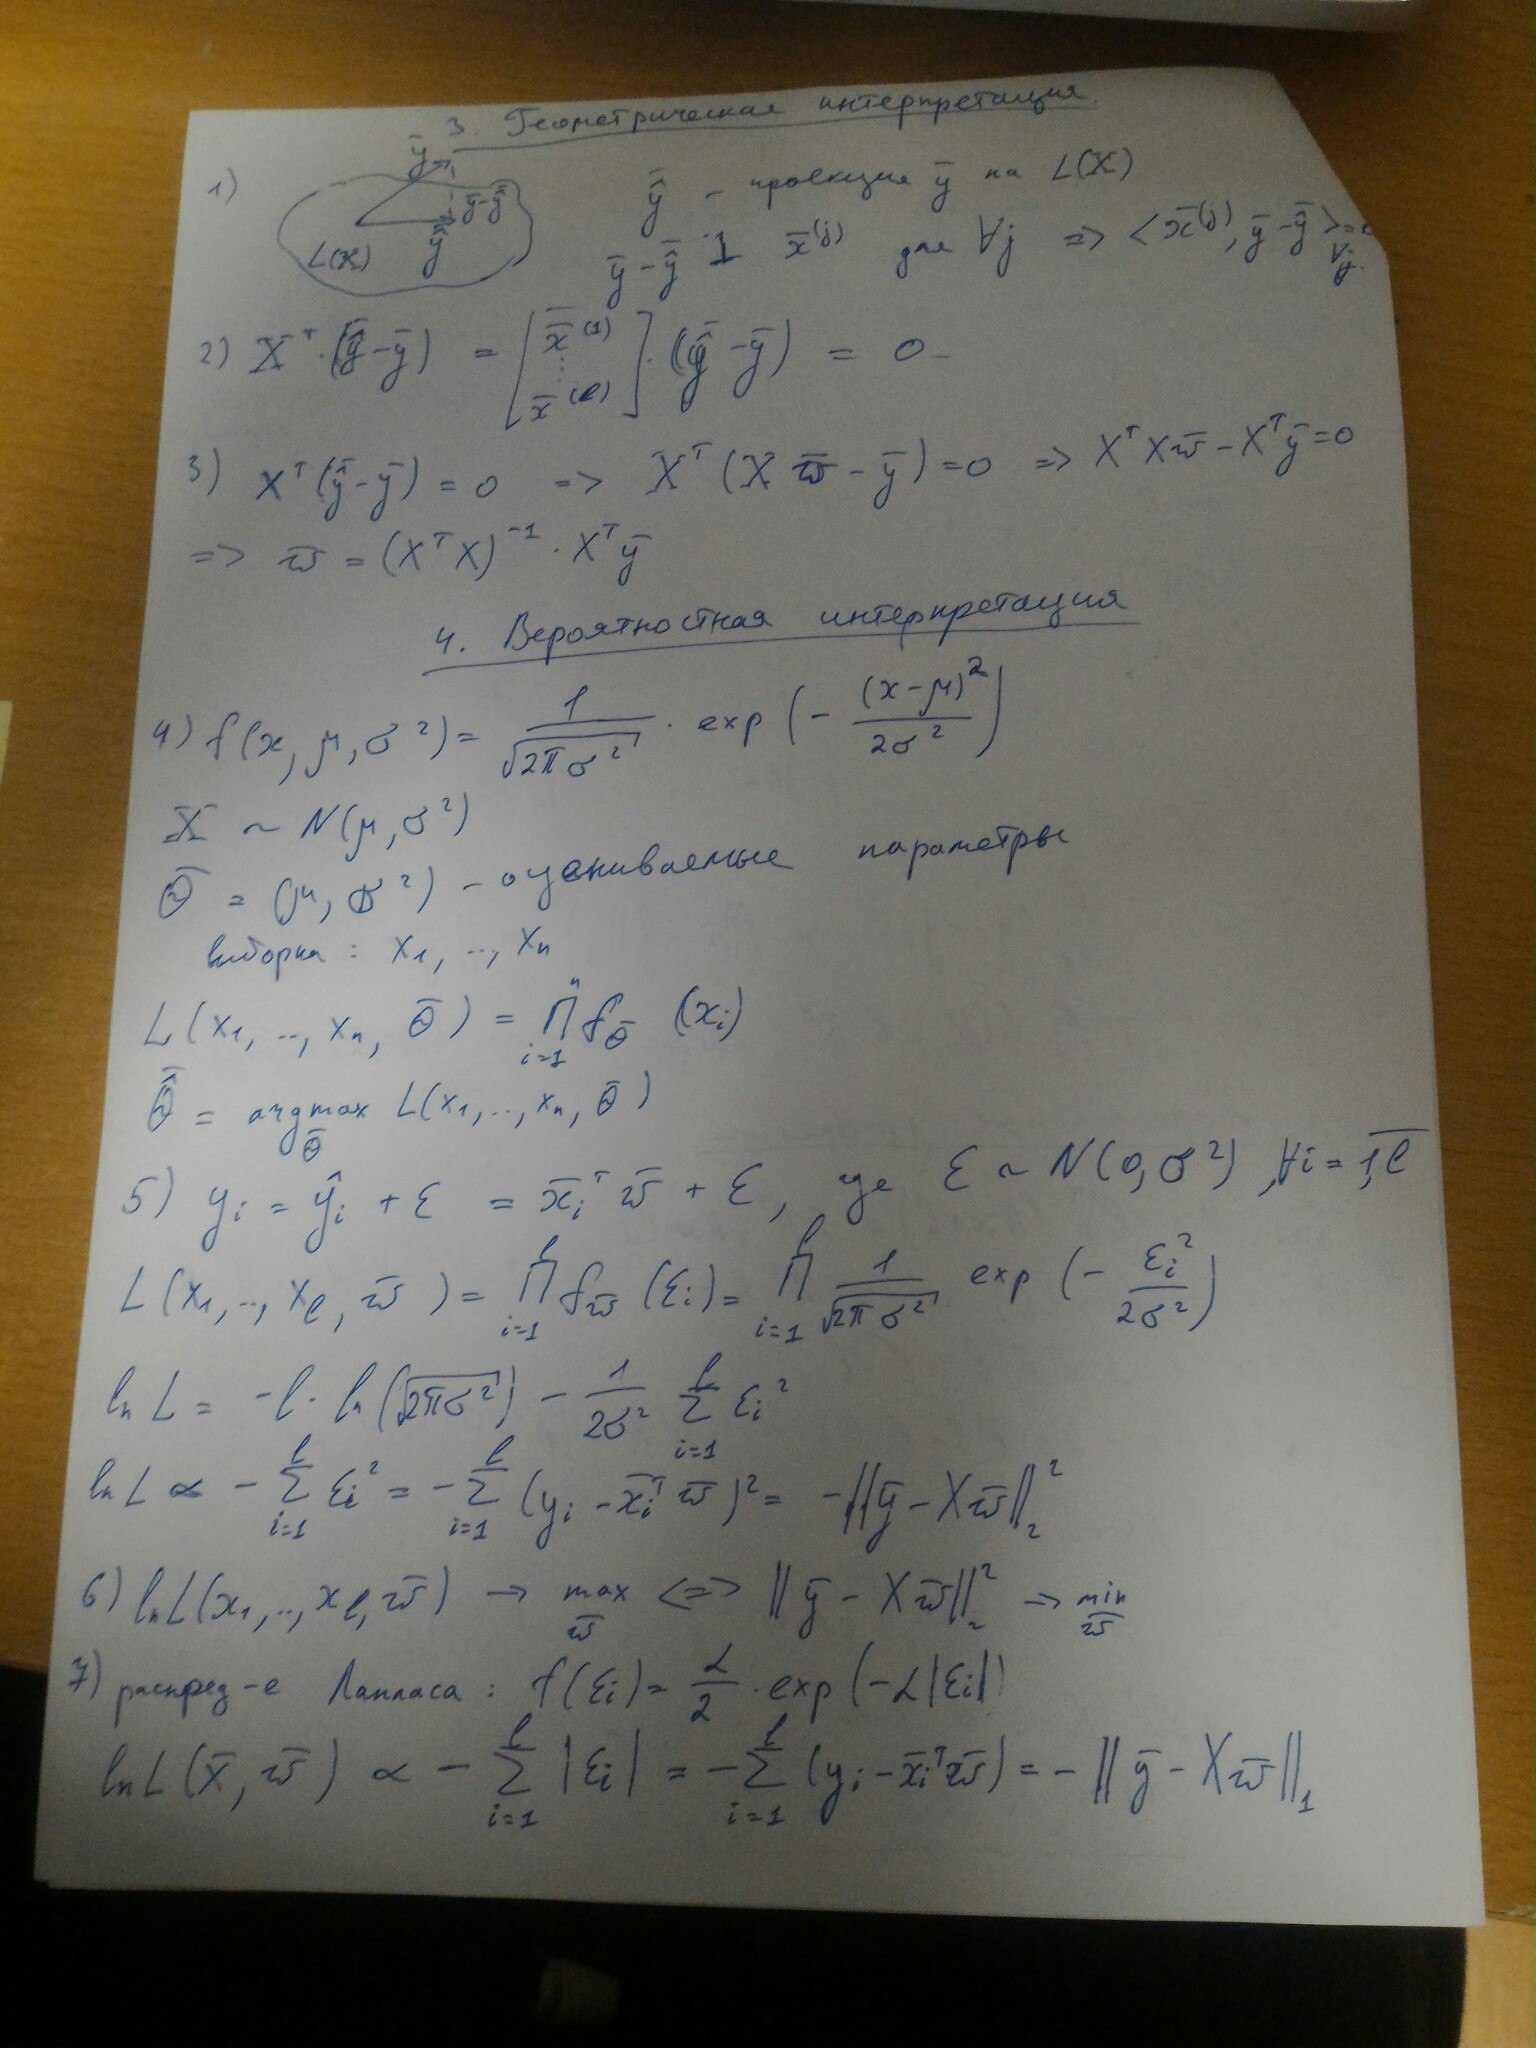 3. Геометрическая интерпретация.
1) ȳ ȳ-ŷ̄ L(X) ŷ̄
ŷ̄ - проекция ȳ на L(X)
ȳ - ŷ̄ ⊥ x̄⁽ʲ⁾ для ∀j => <x̄⁽ʲ⁾, ȳ - ŷ̄> = ∀j.
2) Xᵀ·(ŷ̄ - ȳ) = [x̄⁽¹⁾ ⋮ x̄⁽ˡ⁾]·(ŷ̄ - ȳ) = 0
3) Xᵀ(ŷ̄ - ȳ) = 0 => Xᵀ(Xw̄ - ȳ) = 0 => XᵀXw̄ - Xᵀȳ = 0
=> w̄ = (XᵀX)⁻¹·Xᵀȳ
4. Вероятностная интерпретация
4) f(x, μ, σ²) = 1/√(2πσ²) · exp(- (x-μ)²/2σ²)
X ~ N(μ, σ²)
θ̄ = (μ, σ²) - оцениваемые параметры
выборка: x₁, .., xₙ
L(x₁, .., xₙ, θ̄) = ∏ⁿᵢ₌₁ f_θ̄ (xᵢ)
θ̄̂ = argmax_θ̄ L(x₁, .., xₙ, θ̄)
5) yᵢ = ŷᵢ + ε = x̄ᵢᵀw̄ + ε, где ε ~ N(0, σ²), ∀i = 1,l̅
L(x₁, .., x_l, w̄) = ∏ˡᵢ₌₁ f_w̄ (εᵢ) = ∏ˡᵢ₌₁ 1/√(2πσ²) exp(- εᵢ²/2σ²)
ln L = -l·ln(√(2πσ²)) - 1/2σ² Σˡᵢ₌₁ εᵢ²
ln L ∝ - Σˡᵢ₌₁ εᵢ² = - Σˡᵢ₌₁ (yᵢ - x̄ᵢᵀw̄)² = -||ȳ - Xw̄||₂²
6) ln L(x₁, .., x_l, w̄) → max_w̄ <=> ||ȳ - Xw̄||₂² → min_w̄
7) распред-е Лапласа: f(εᵢ) = α/2 · exp(-α|εᵢ|)
ln L(x̄, w̄) ∝ - Σˡᵢ₌₁ |εᵢ| = - Σˡᵢ₌₁ (yᵢ - x̄ᵢᵀw̄) = -||ȳ - Xw̄||₁